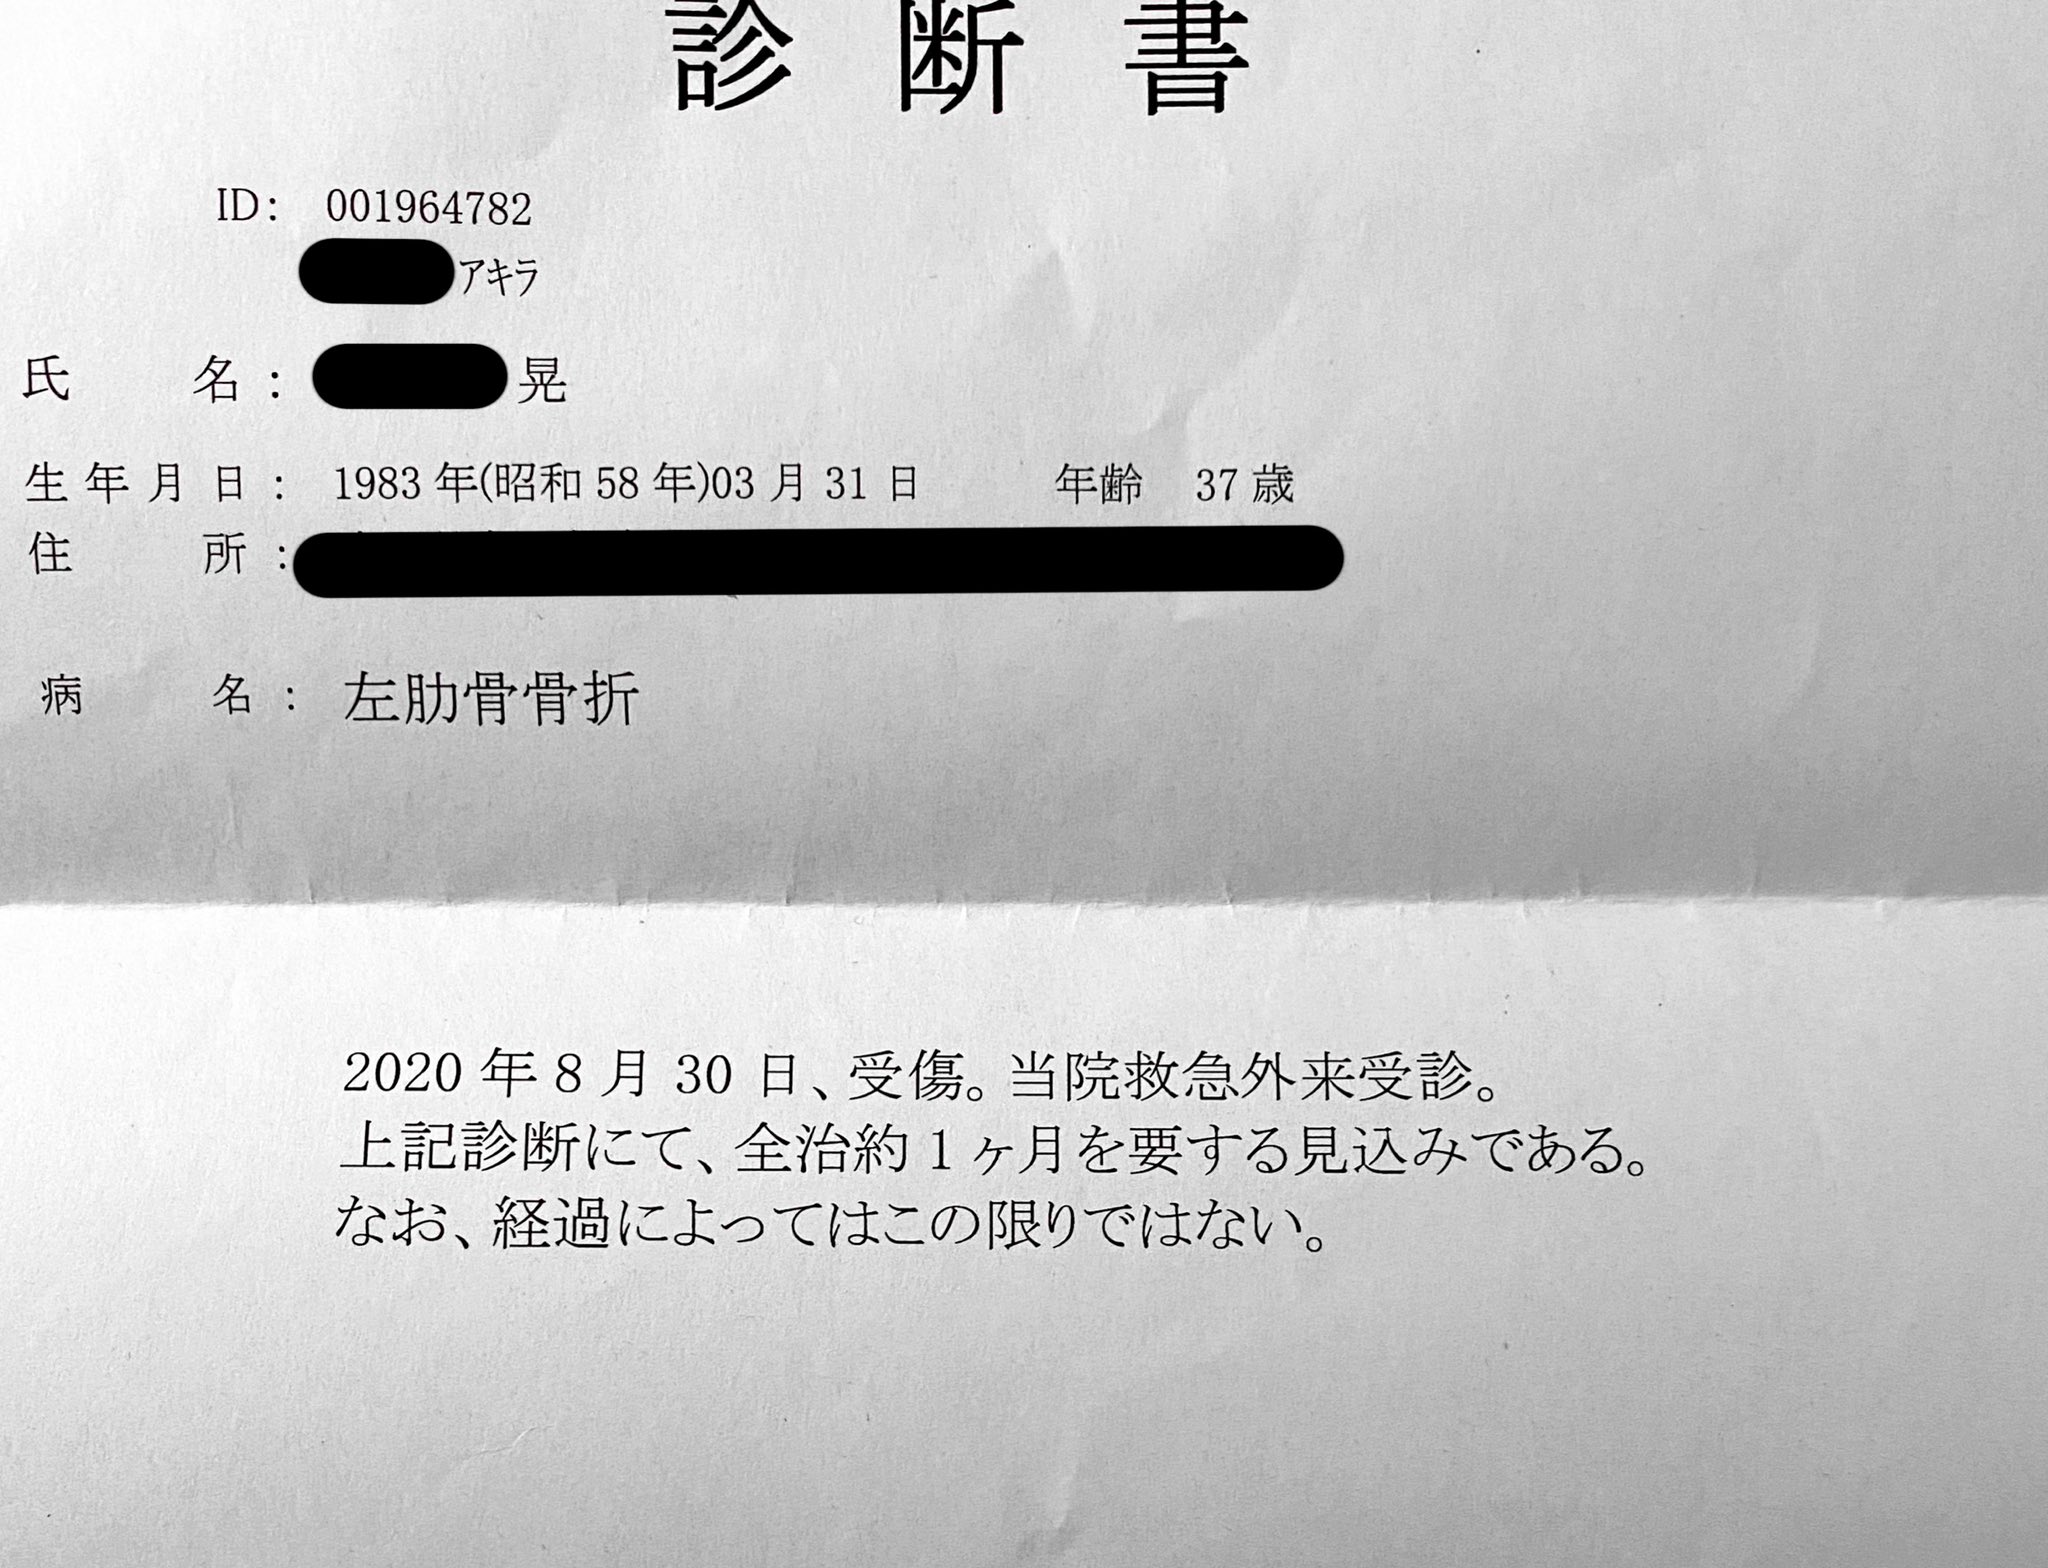 診断書
ID: 001964782
アキラ
氏名: 晃
生年月日: 1983年(昭和58年)03月31日 年齢 37歳
住所:
病名: 左肋骨骨折
2020年8月30日、受傷。当院救急外来受診。
上記診断にて、全治約1ヶ月を要する見込みである。
なお、経過によってはこの限りではない。